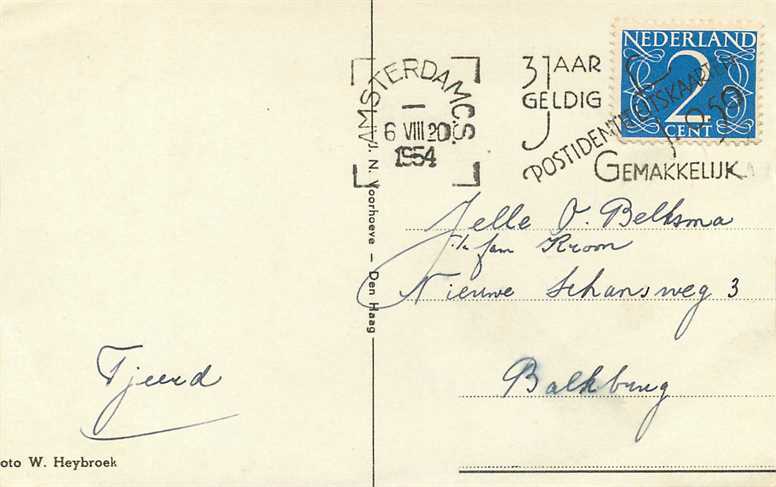 AMSTERDAM C.S.
6 VIII 20
1954
3 JAAR
GELDIG
POSTIDENTITEITSKAARTEN
f 0.50
GEMAKKELIJK
NEDERLAND
2
CENT
Jelle V. Beltsma
fam Kroon
Nieuwe Schansweg 3
Balkbrug
Tjeerd
J. N. Voorhoeve – Den Haag
oto W. Heybroek